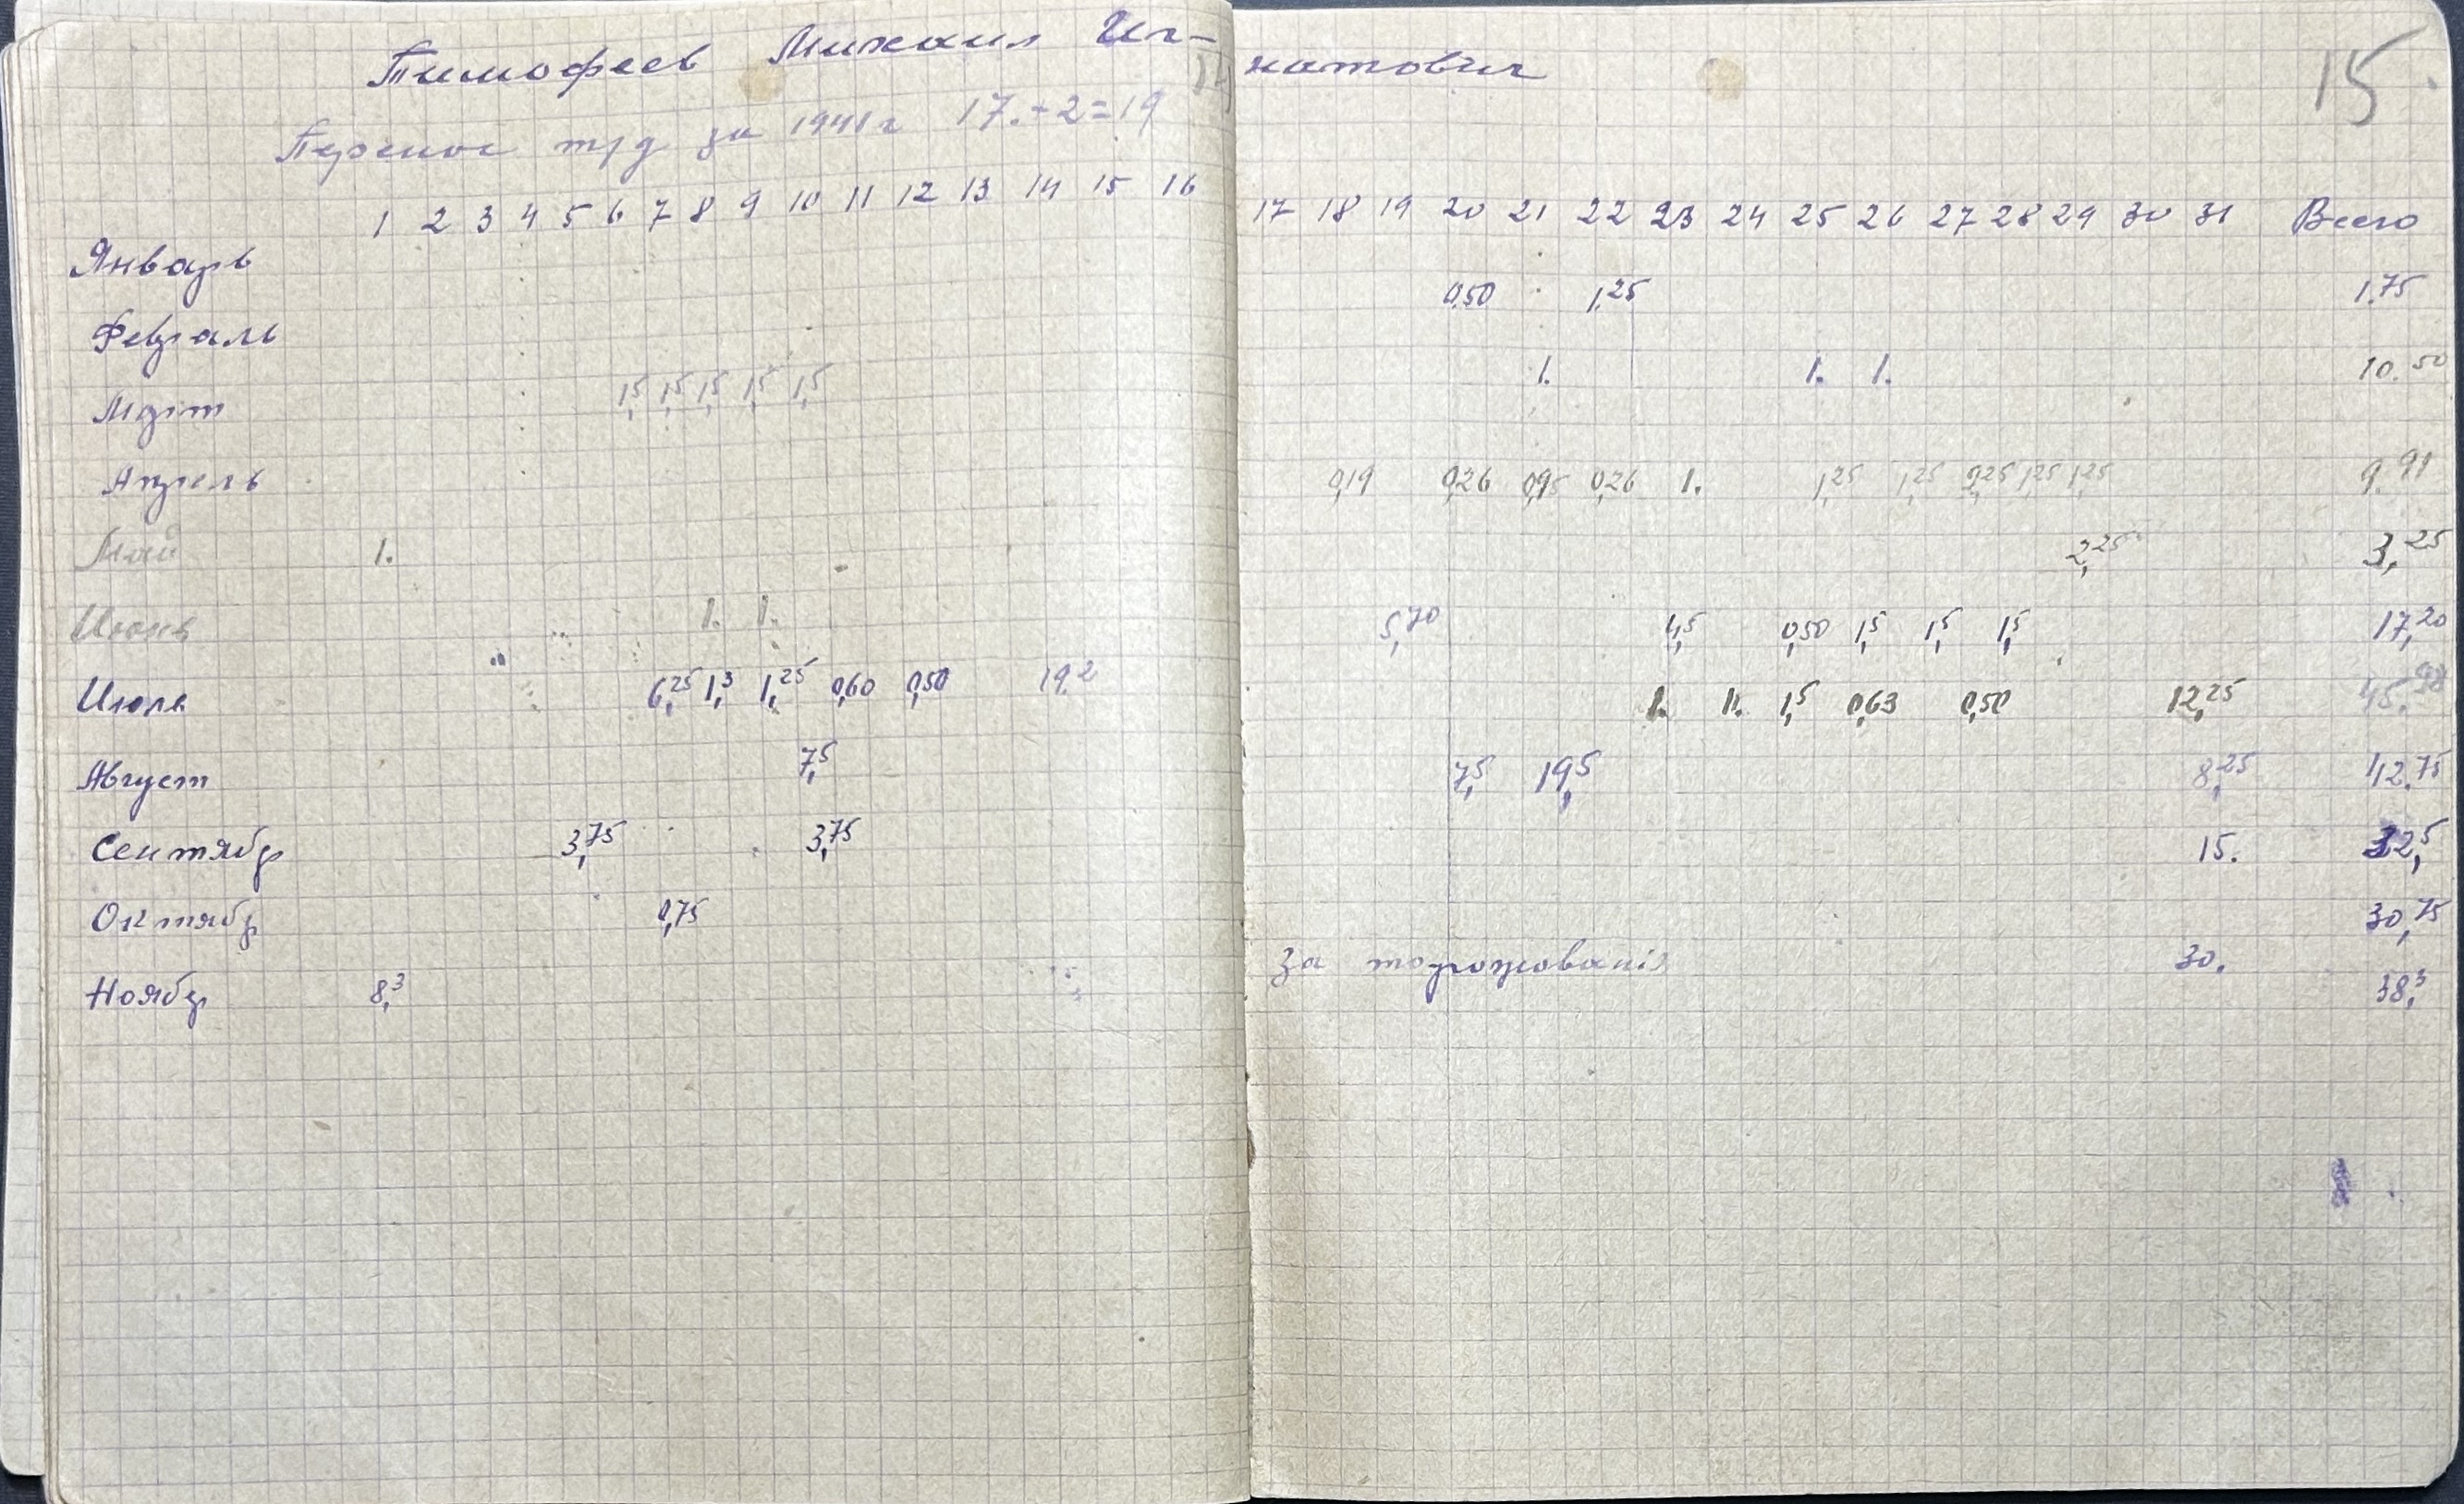 Тимофеев Михаил Иг-натович
15
Перенос т/д за 1941 г 17.+2=19
1 2 3 4 5 6 7 8 9 10 11 12 13 14 15 16 17 18 19 20 21 22 23 24 25 26 27 28 29 30 31 Всего
Январь
0,50 1,25 1,75
Февраль
1. 1. 1. 10.50
Март 1,5 1,5 1,5 1,5 1,5
Апрель 0,19 0,26 0,95 0,26 1. 1,25 1,25 0,25 1,25 1,25 9.91
Май 1. 2,25 3,25
Июнь 1. 1. 5,70 4,5 0,50 1,5 1,5 1,5 17,20
Июль 6,25 1,3 1,25 0,60 0,50 19,2 1. 11. 1,5 0,63 0,50 12,25 45,98
Август 7,5 7,5 19,5 8,25 42,75
Сентябр 3,75 3,75 15. 32,5
Октябр 0,75 30,75
За 30.
Ноябр 8,3 38,3